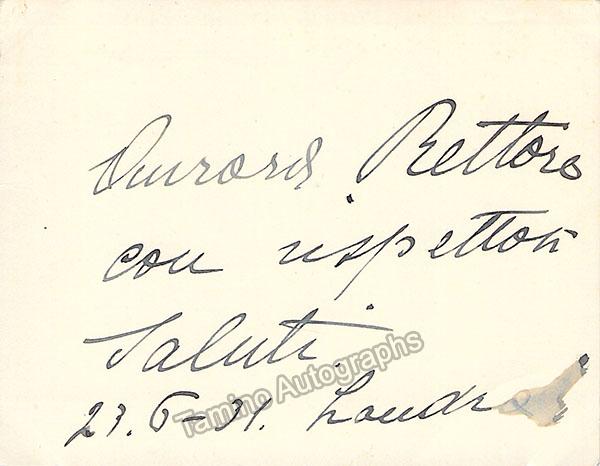 Aurora Rettore
con rispettosi
Saluti.
23.6-31. Londra
Tamino Autographs